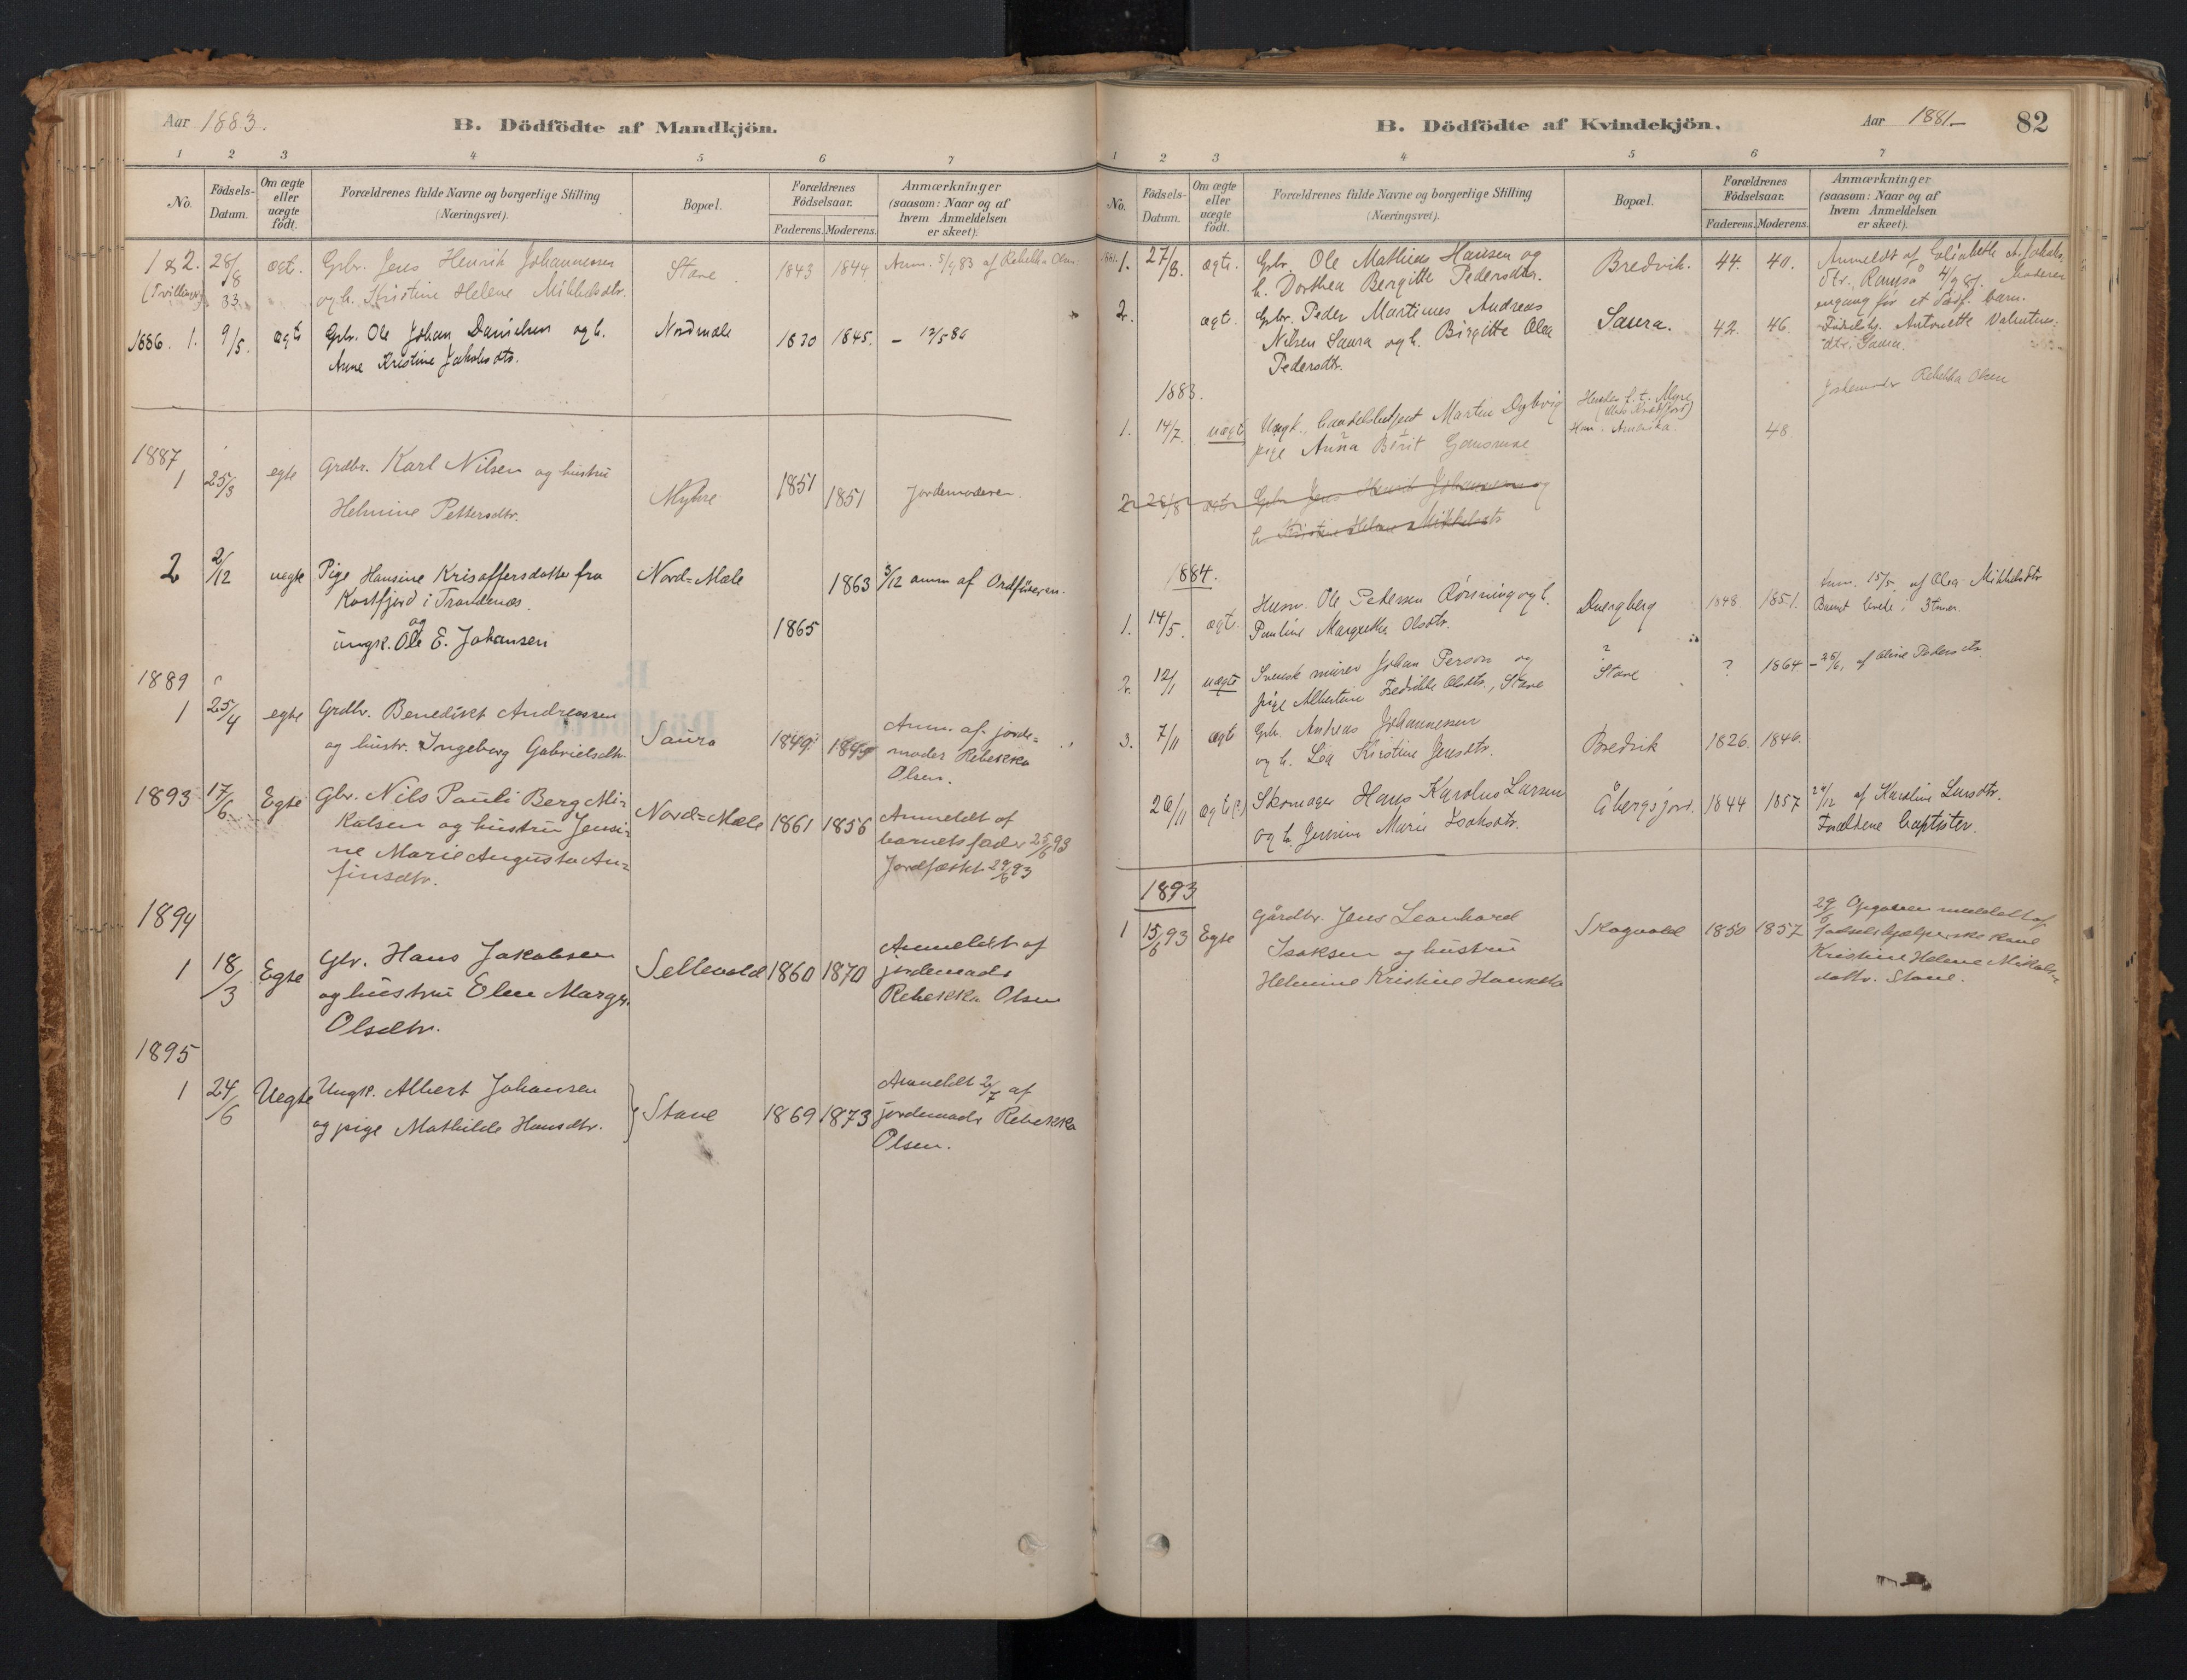 Aar 1883.
B. Dödfödte af Mandkjön.
1 2 3 4 5 6 7
No.
Födsels-Datum.
Om ægte eller uægte födt.
Forældrenes fulde Navne og borgerlige Stilling
(Næringsvei).
Bopæl.
Forældrenes Födselsaar.
Faderens. Moderens.
Anmærkninger
(saasom: Naar og af
hvem Anmeldelsen
er skeet).
1 & 2. 28/8 ægt. Gbr. Jens Henrik Johannesen Stave 1843 1844 Anm. 5/9 83 af Rebekka Olsen
(Tvillinger) 83. og h. Kristine Helene Mikkelsdtr.
1886. 1. 9/5. ægte Gbr. Ole Johan Danielsen og h. Nordmæle 1830 1845. – 12/5 86
Anne Kristine Jakobsdtr.
1887
1 25/3 egte Grdbr. Karl Nilsen og hustru Myhre 1851 1851 Jordemoderen.
Helmine Pettersdtr.
2 2/12 uegte Pige Hansine Krisoffersdatter fra Nord=Mæle 1863 3/12 anm af Ordföreren.
Kastfjord i Trondenæs.
og
ungk. Ole E. Johansen 1865
1889
1 25/4 egte Grdbr. Benedikt Andreassen
og hustr. Ingeborg Gabrielsdtr. Saura 1849 1849 Anm. af jorde=
moder Rebekka
Olsen.
1893 17/6 Egte Gbr. Nils Pauli Berg Mi=
kalsen og hustru Jensi=
ne Marie Augusta An=
finsdtr. Nord=Mæle 1861 1856 Anmeldt af
barnets fader 25/6 93
Jordfæstet 29/6 93
1894
1 18/3 Egte Gbr. Hans Jakobsen
og hustru Elen Margr.
Olsdtr. Sellevold 1860 1870 Anmeldt af
jordemoder
Rebekka Olsen
1895
1 24/6 Uegte Ungk. Albert Johansen
og pige Mathilde Hansdtr. } Stave 1869 1873 Anmeldt 2/7 af
jordemoder Rebekka
Olsen.
B. Dödfödte af Kvindekjön.
Aar 1881.–
82
1 2 3 4 5 6 7
No.
Födsels-Datum.
Om ægte eller uægte födt.
Forældrenes fulde Navne og borgerlige Stilling
(Næringsvei).
Bopæl.
Forældrenes Födselsaar.
Faderens. Moderens.
Anmærkninger
(saasom: Naar og af
hvem Anmeldelsen
er skeet).
1881. 1. 27/8. ægte. Gbr. Ole Mathias Hansen og
h. Dorthea Bergitte Pedersdtr. Bredvik. 44. 40. Anmeldt af Elisabeth Jakobs
dtr., Ramså 4/9 81. Moderen
engang før et dødf. barn.
2. ægte. Gbr. Peder Martinus Andreas
Nilsen Saura og h. Birgitte Olea
Pedersdtr. Saura. 42. 46. Antonette Valentins=
dtr. Saura.
1883.
1. 14/7. uægte Ungk. handelsbetjent Martin Dybvig
pige Anna Berit
f. t. Myre
Hun: Amerika. 48. Jordemoder Rebekka Olsen
2 28/8 ægte Gbr Jens Henrik Johannesen og
h Kristine Helene Mikkelsdtr
1884.
1. 14/5. ægte. Husm. Ole Pedersen Rønning og h.
Pauline Margrethe Olsdtr. Dverberg 1848. 1851. Anm. 15/5 af Olea Mikkelsdtr
Barnet levede i 3 timer.
2. 12/1 uægte Svensk murer Johan Person og
pige Albertine Fredrikke Olsdtr., Stave ? Stave ? 1864 – 25/6, af Pedersdtr.
3. 7/11 ægte Gbr. Andreas Johannessen
og h. Lea Kirstine Jensdtr. Bredvik 1826. 1846.
26/11 ægte (?) Skomager Hans Karolus Larsen
og h. Jensine Marie Isaksdtr. Åbergsjord. 1844 1857 24/12 af Karoline Larsdtr.
Forældrene baptister.
1893
1 15/6 93 Egte Gårdbr. Jens Leonhard
Isaksen og hustru
Helmine Kristine Skogvold 1850 1857 29/6 Opgaven meddelt af
fødselshjælperske kone
Kristine Helene Mikals=
dattr. Stave.